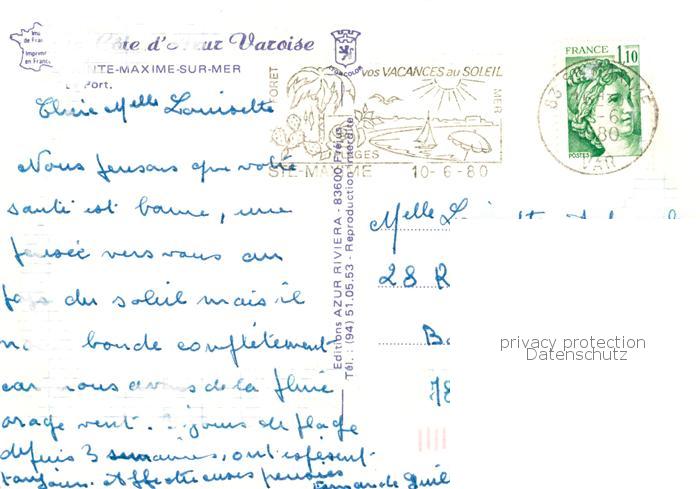 Imp
de Fran
Imprimé
en France
Côte d'Azur Varoise
NTE-MAXIME-SUR-MER
Port.
FORET
vos VACANCES au SOLEIL
MER
PLAGES
STE-MAXIME 10-6-80
FRANCE 1,10
POSTES
80
VAR
Editions AZUR RIVIERA - 83600 Fréjus
Tél. : (94) 51.05.53 - Reproduction interdite
Chère Melle Louisette
Nous pensons que votre
santé est bonne, une
pensée vers vous au
pays du soleil mais il
boude complètement
car nous avons de la pluie
orage vent. jours de plage
depuis 3 semaines, on espèrent
toujours. Affectueuses pensées
Melle
28 R
B
78
privacy protection
Datenschutz